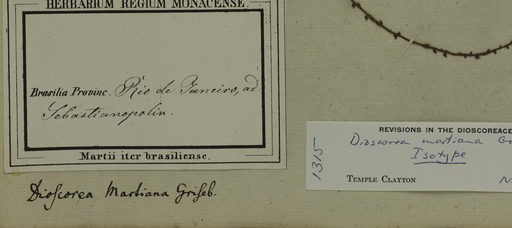 HERBARIUM REGIUM MONACENSE.
Brasilia Provinc. Rio de Janeiro, ad
Sebastianopolin.
Martii iter brasiliense.
Dioscorea Martiana Griseb.
1315
REVISIONS IN THE DIOSCOREACE
Dioscorea martiana Gr
Isotype
TEMPLE CLAYTON N